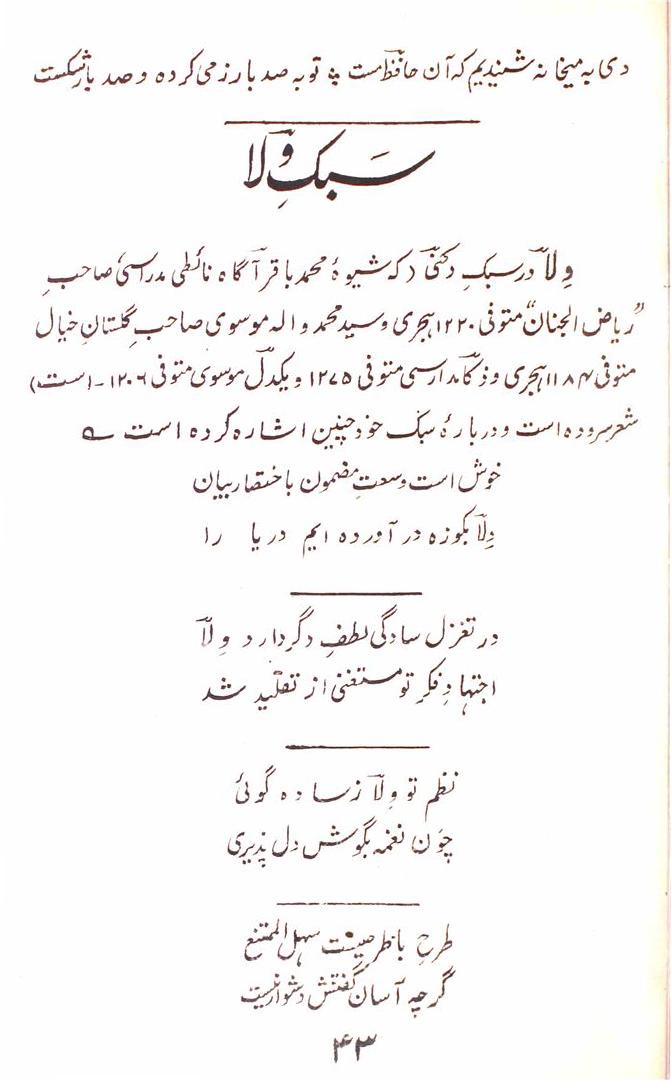 دی به میخانه شنیدیم که آن حافظ مست ؞ توبه صد بار ز می کرده و صد بار شکست
سبکِ ولا
وِلاؔ در سبکِ دکنی (که شیوهٔ محمد باقر آگاه نائطی مدراسی صاحبِ
"ریاض الجنان" متوفی ۱۲۲۰ ہجری و سید محمد والہ موسوی صاحبِ گلستانِ خیال
متوفی ۱۱۸۴ ہجری و ذکاؔ مدارسی متوفی ۱۲۷۵ و یکدلؔ موسوی متوفی ۱۲۰۶-(است)
شعر سروده است و دربارهٔ سبک خود چنین اشاره کرده است ے
خوش است وسعتِ مضمون باختصار بیان
وِلاؔ بکوزه در آورده ایم دریا را
در تغزل سادگی لطفِ دگر دارد وِلاؔ
اجتهادِ فکرِ تو مستغنی از تقلید شد
نظم تو وِلاؔ ز ساده گوئی
چون نغمه بگوش دل پذیری
طرحِ ما طرحیست سہل الممتنع
گرچه آسان گفتنش دشوار نیست
۴۳